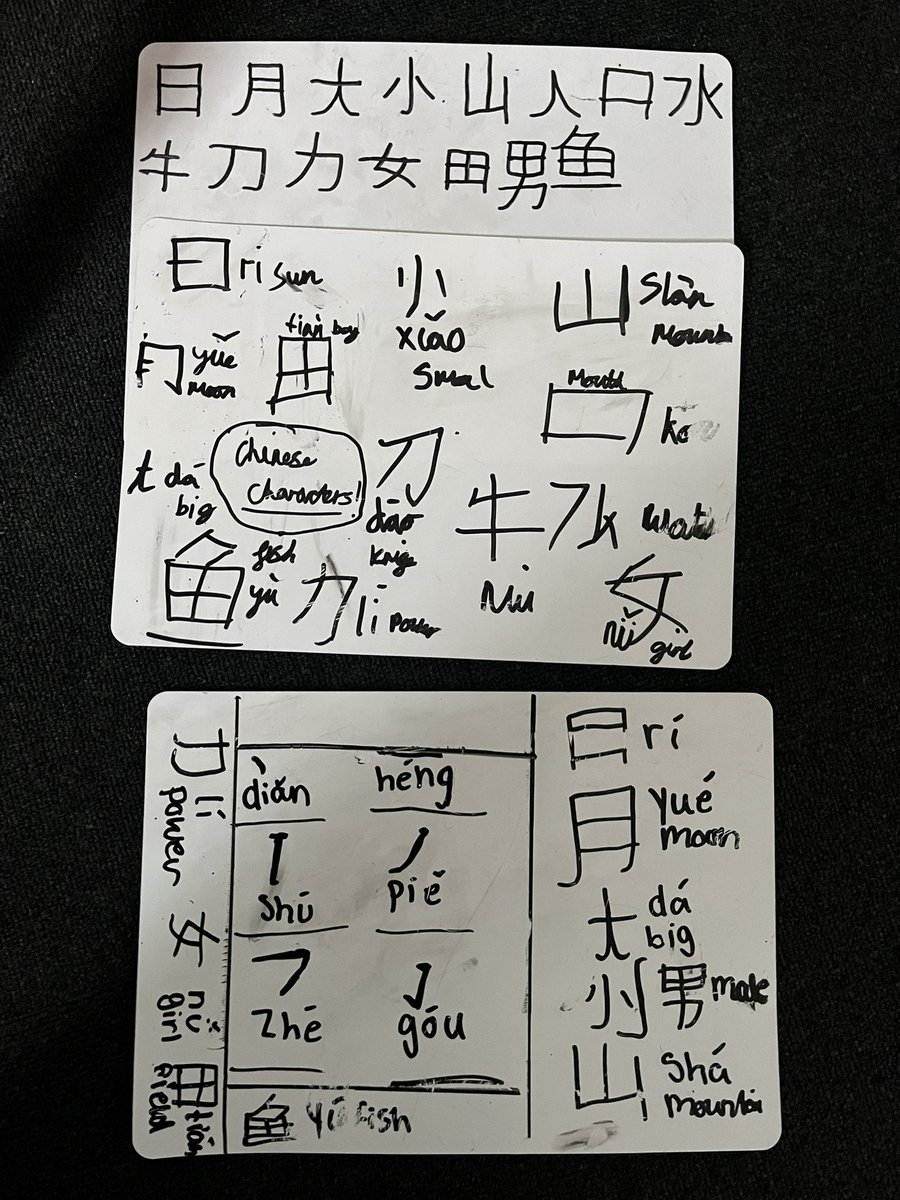 日 月 大 小 山 人 口 水
牛 刀 力 女 田 男 鱼
日 rì sun
月 yuě
moon
tian boy
田
小
xiǎo
Smal
山
Mouth
口
大 dá
big
Chinese
Characters!
刀
dāo
牛
水
鱼 fish
yù
力 lī power
Niú
女
nǚ girl
力 lí
power
女
nǚ
girl
田 tián
field
diǎn
héng
shú
丿
piě
zhé
góu
鱼 yú fish
日 rí
月 yué
moon
大 dá
big
小 男 male
山 shá